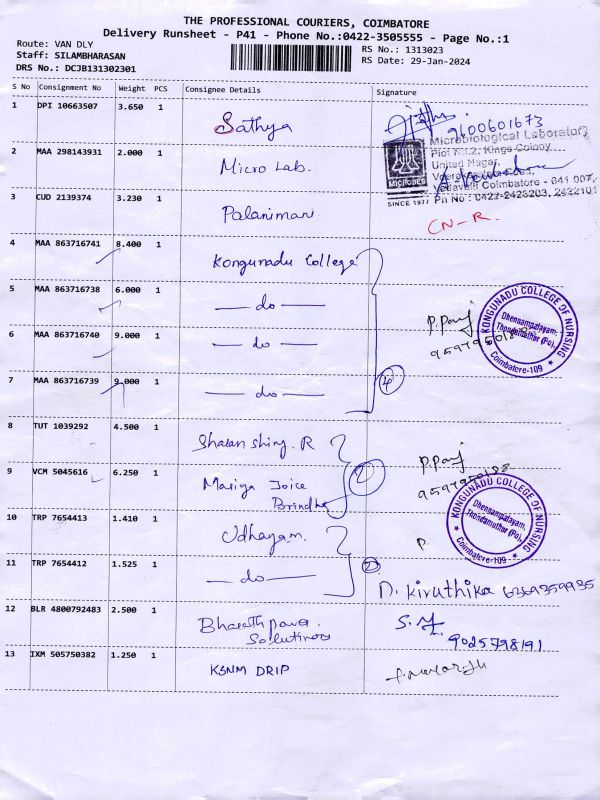 THE PROFESSIONAL COURIERS, COIMBATORE
Delivery Runsheet - P41 - Phone No.:0422-3505555 - Page No.:1
Route: VAN DLY
Staff: SILAMBHARASAN
DRS No.: DCJB131302301
RS No.: 1313023
RS Date: 29-Jan-2024
S No Consignment No Weight PCS Consignee Details Signature
1 DPI 10663507 3.650 1 Sathya
9600601673
2 MAA 298143931 2.000 1 Micro Lab.
Microbiological Laboratory
Plot No.2, Kings Colony
United Nagar,
Coimbatore - 641 007.
MICROBES
SINCE 1977 Ph No : 0422-2426203, 2422101
3 CUD 2139374 3.230 1 Palanimari
CN-R.
4 MAA 863716741 8.400 1 Kongunadu College
5 MAA 863716738 6.000 1 do
6 MAA 863716740 9.000 1 do
P.Pavi
KONGUNADU COLLEGE OF NURSING
Dhennampalayam,
Thondamuthur (Po),
Coimbatore-109
7 MAA 863716739 9.000 1 do
4
8 TUT 1039292 4.500 1 Sharan Shiny. R
P.Pavi
9597950188
9 VCM 5045616 6.250 1 Mariya Joice
Brindha
2
KONGUNADU COLLEGE OF NURSING
Dhennampalayam,
Thondamuthur (Po),
Coimbatore-109
10 TRP 7654413 1.410 1 Udhayam.
P.
11 TRP 7654412 1.525 1 do
2
D. Kiruthika 6369359935
12 BLR 4800792483 2.500 1 Bharath power
Solutions
9025798191
13 IXM 505750382 1.250 1 KSNM DRIP